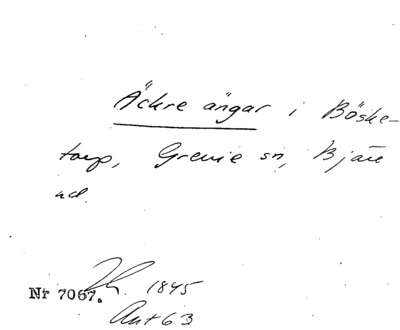 Äckre ängar i Böske-
torp, Grevie sn, Bjäre
hd.
1845
Nr 7067.
Avt 63